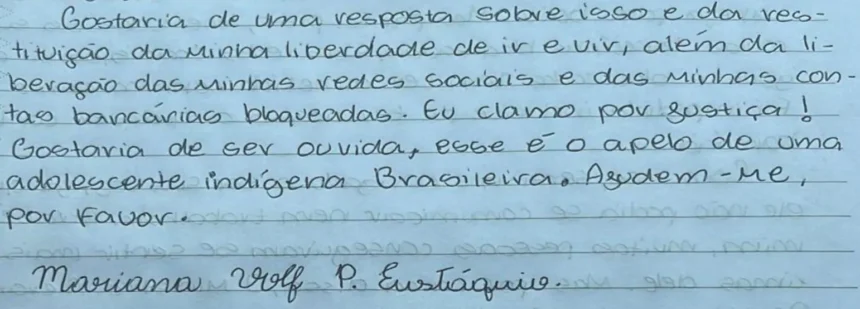 Gostaria de uma resposta sobre isso e da res-
tituição da minha liberdade de ir e vir, além da li-
beração das minhas redes sociais e das minhas con-
tas bancárias bloqueadas. Eu clamo por justiça!
Gostaria de ser ouvida, esse é o apelo de uma
adolescente indígena Brasileira. Ajudem-me,
por favor.
Mariana Volf P. Eustáquio.